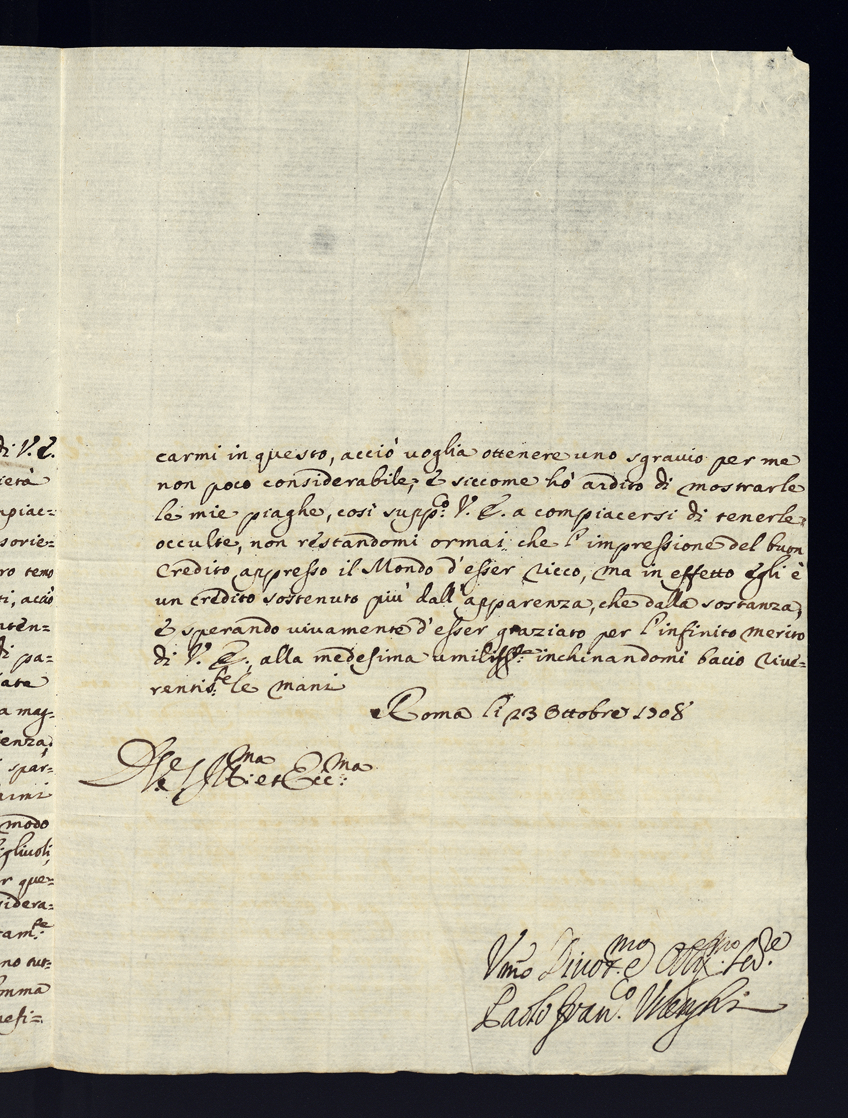 di V. E.
ietà
mpiac=
sorie=
ro temo
ti, acciò
nten=
di pa=
ate
a mag=
ienza,
i spar=
armi
modo
figliuoli,
er que=
sidera=
tam.te
no tut=
omma
nesi=
carmi in questo, acciò uoglia ottenere uno sgrauio per me
non poco considerabile; E siccome hò ardito di mostrarle
le mie piaghe, così supp.co V. E. a compiacersi di tenerle
occulte, non restandomi ormai che l'impressione del buon
Credito appresso il Mondo d'esser ricco, ma in effetto Egli è
un credito sostenuto più dall'apparenza, che dalla sostanza,
E sperando uiuamente d'esser graziato per l'infinito merito
di V. E., alla medesima umiliss.te inchinandomi bacio riue=
rentis.te le mani
Roma li 23 Ottobre 1708
et Ecc.ma
Vmo Diuot.mo e Ser.e
Paolo Fran.co